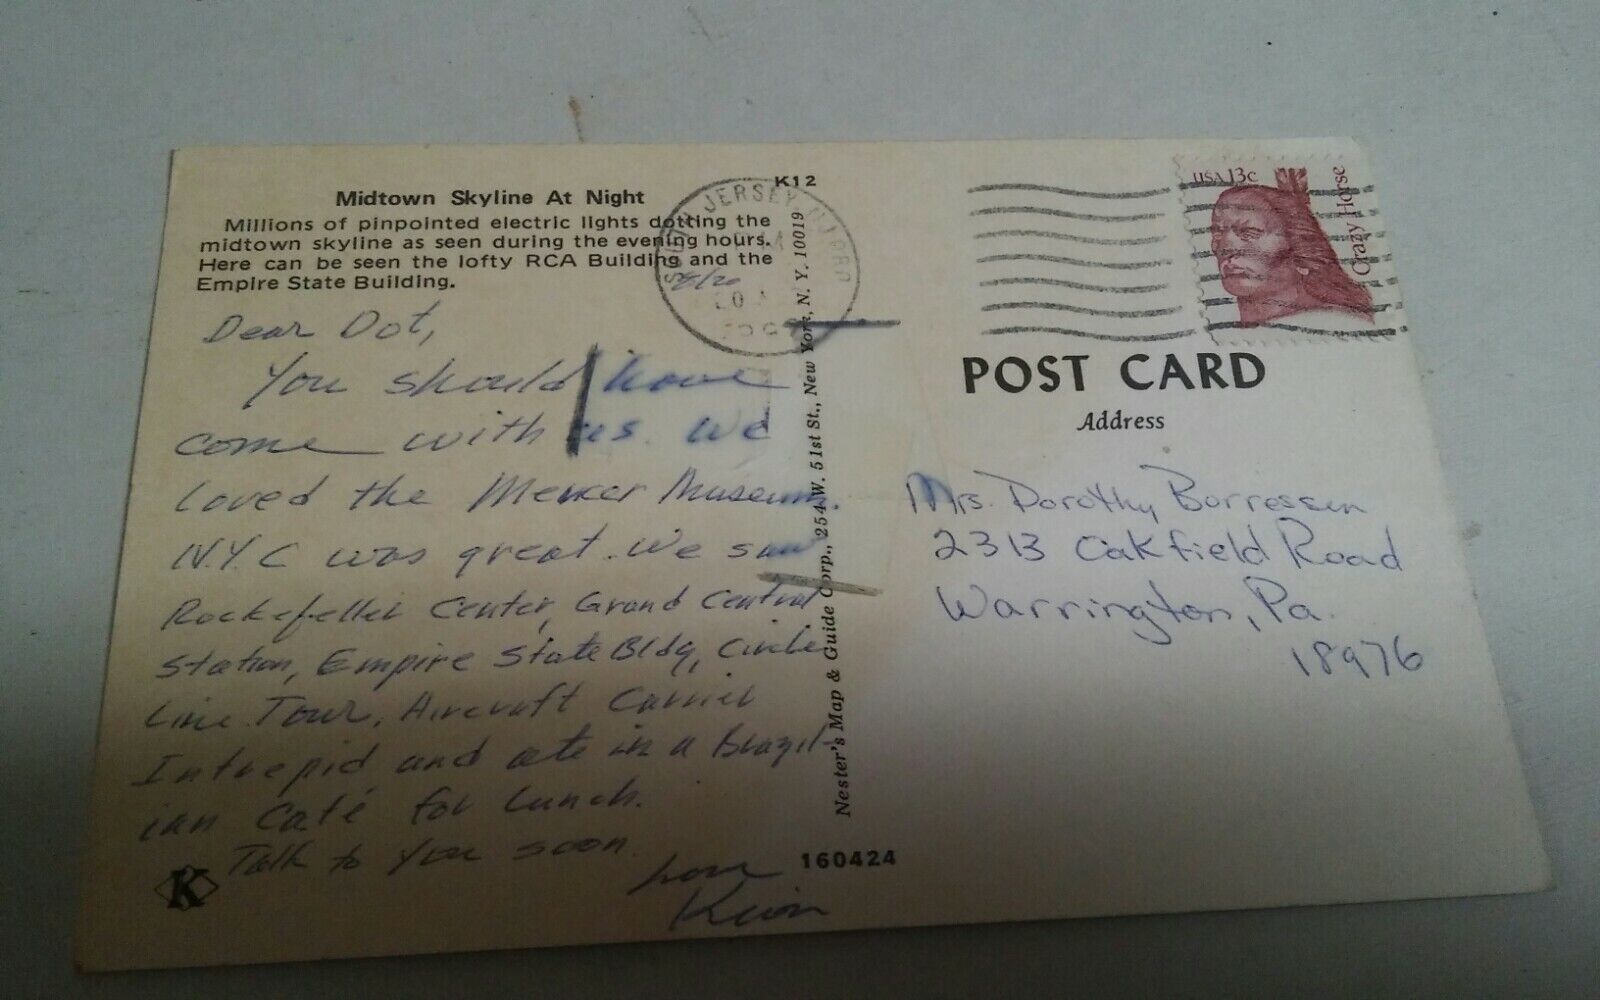 Midtown Skyline At Night
Millions of pinpointed electric lights dotting the
midtown skyline as seen during the evening hours.
Here can be seen the lofty RCA Building and the
Empire State Building.
8/20
Dear Dot,
You should have
come with us. We
Loved the Mercer Museum.
N.Y.C was great. We saw
Rockefeller Center, Grand Central
Station, Empire State Bldg, Circle
Line Tour, Aircraft Carrier
Intrepid and ate in a Brazil-
ian Café for Lunch.
Talk to you soon.
Love
K
K12
JERSEY, NJ
20
Nester's Map & Guide Corp., 254 W. 51st St., New York, N. Y. 10019
160424
USA 13c
Crazy Horse
POST CARD
Address
Mrs. Dorothy Borressen
2313 Oakfield Road
Warrington, Pa.
18976